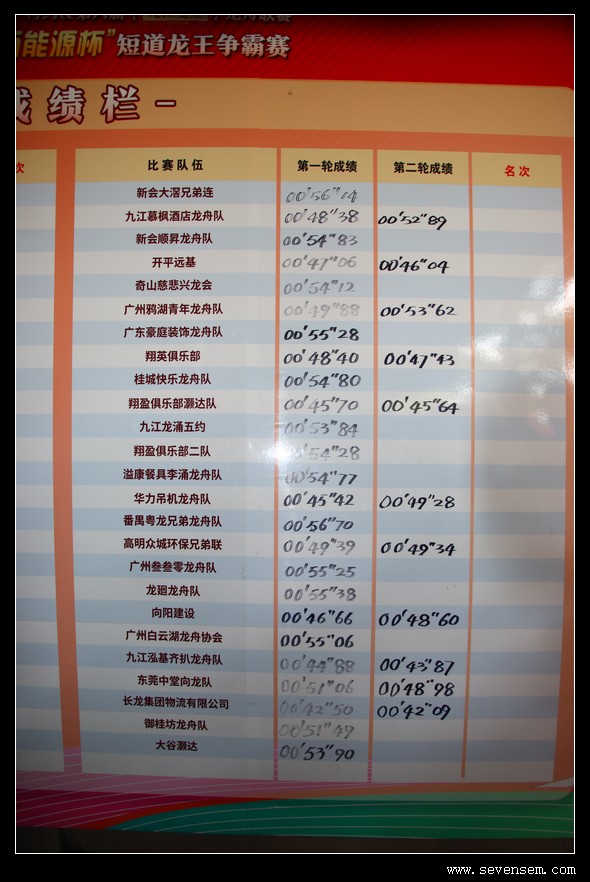 能源杯”短道龙王争霸赛
成绩栏-
次 比赛队伍 第一轮成绩 第二轮成绩 名次
新会大滘兄弟连 00'56"14
九江慕枫酒店龙舟队 00'48"38 00'52"89
新会顺昇龙舟队 00'54"83
开平远基 00'47"06 00'46"04
奇山慈悲兴龙会 00'54"12
广州鸦湖青年龙舟队 00'49"88 00'53"62
广东豪庭装饰龙舟队 00'55"28
翔英俱乐部 00'48"40 00'47"43
桂城快乐龙舟队 00'54"80
翔盈俱乐部灏达队 00'45"70 00'45"64
九江龙涌五约 00'53"84
翔盈俱乐部二队 00'54"28
溢康餐具李涌龙舟队 00'54"77
华力吊机龙舟队 00'45"42 00'49"28
番禺粤龙兄弟龙舟队 00'56"70
高明众城环保兄弟联 00'49"39 00'49"34
广州叁叁零龙舟队 00'55"25
龙廻龙舟队 00'55"38
向阳建设 00'46"66 00'48"60
广州白云湖龙舟协会 00'55"06
九江泓基齐扒龙舟队 00'44"88 00'43"87
东莞中堂向龙队 00'51"06 00'48"98
长龙集团物流有限公司 00'42"50 00'42"09
御桂坊龙舟队 00'51"49
大谷灏达 00'53"90
www.sevensem.com